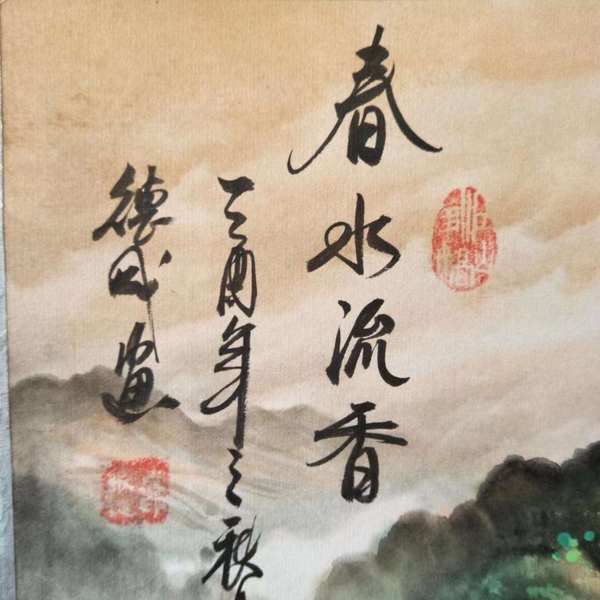 春水流香
丁酉年之秋
德成画